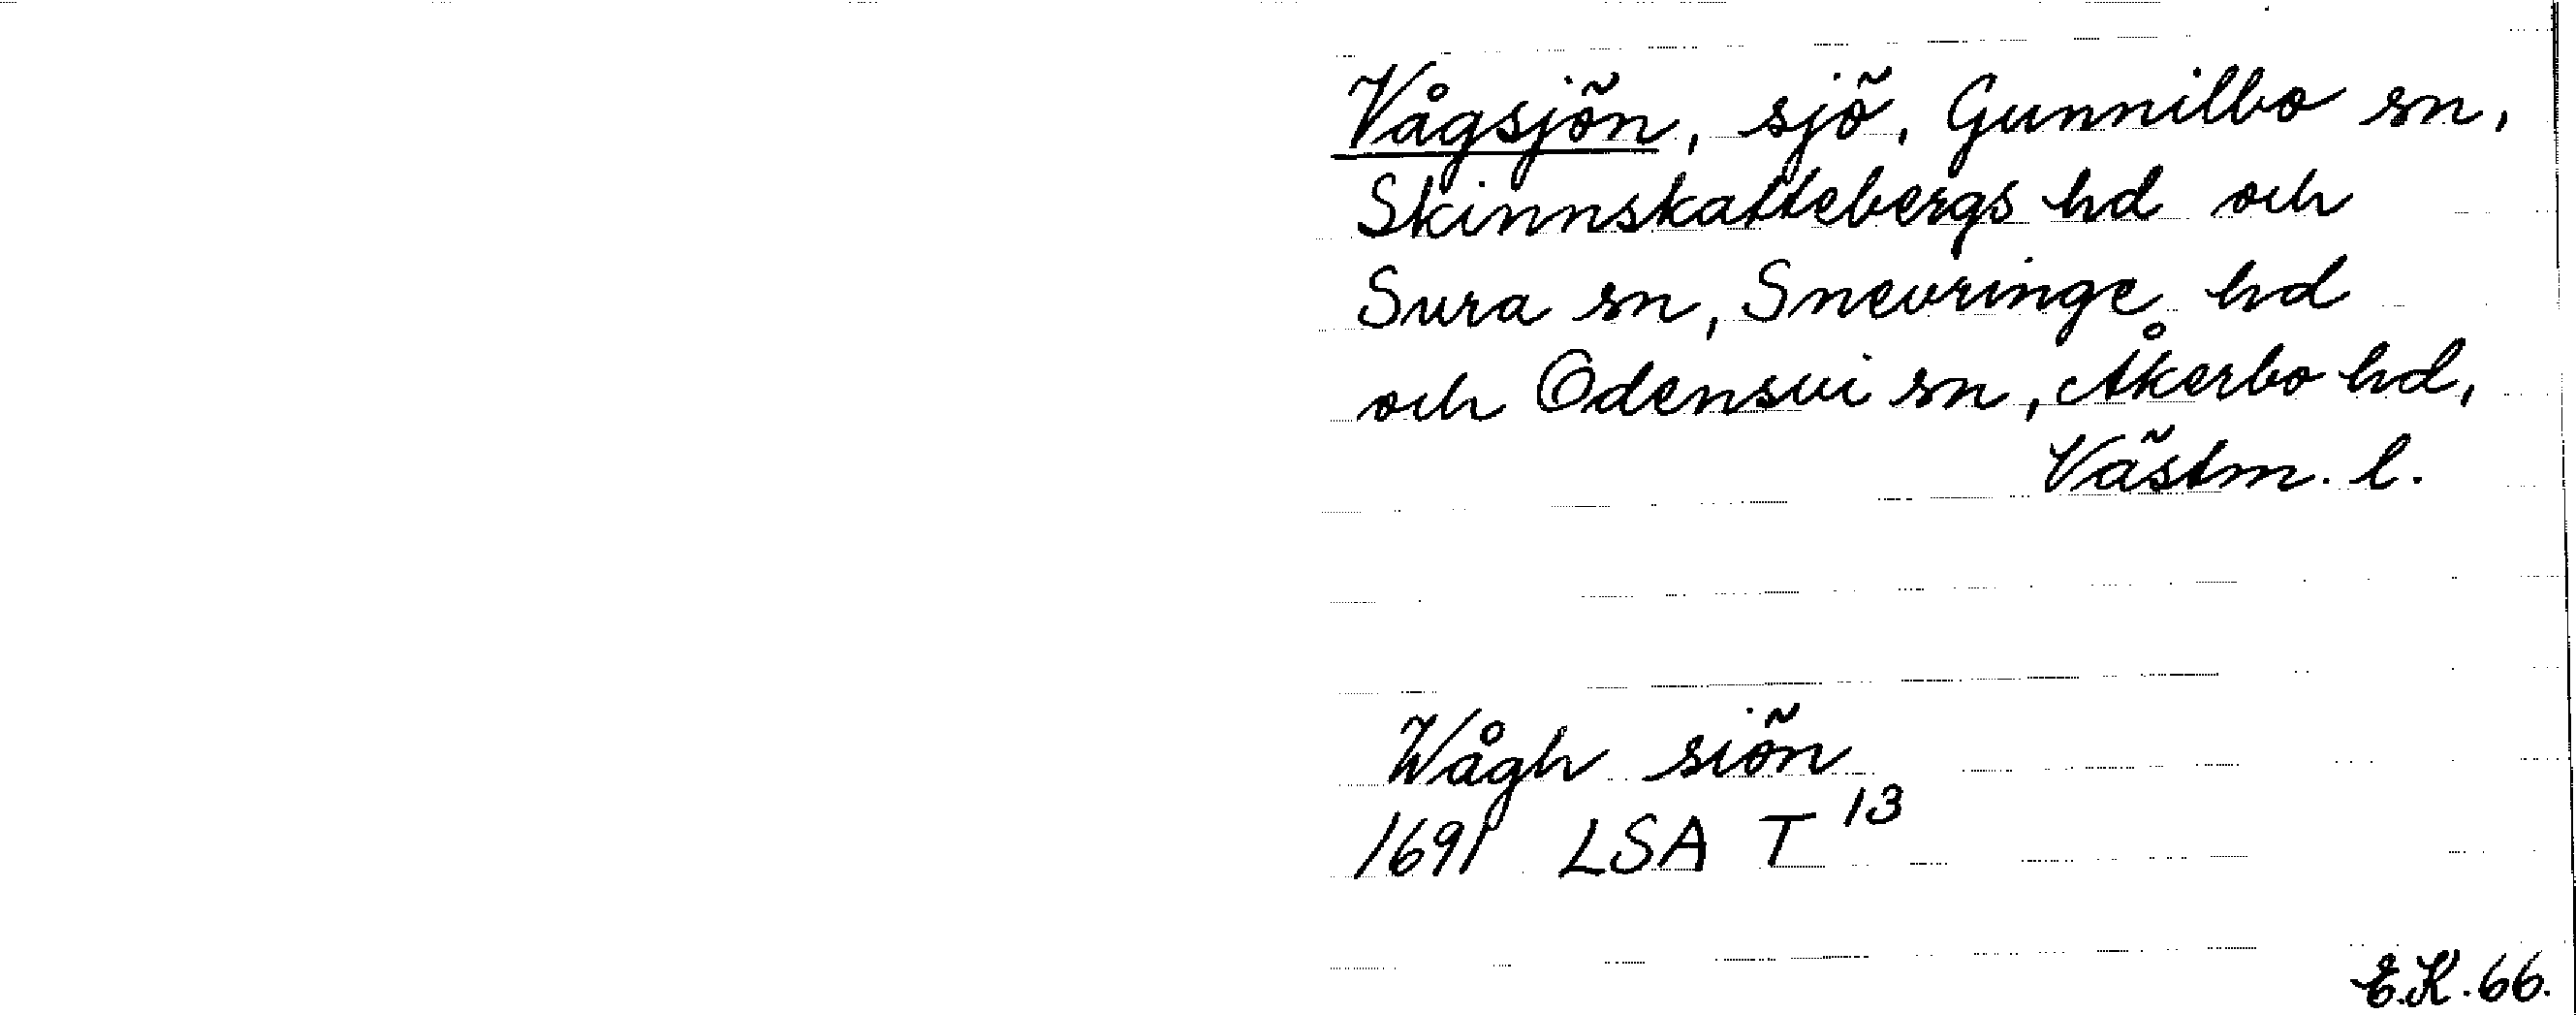 Vågsjön, sjö, Gunnilbo sn,
Skinnskattebergs hd och
Sura sn, Snevringe hd
och Odensvi sn, Åkerbo hd,
Västm. l.
Wågh siön
1691 LSA T 13
E.K. 66.